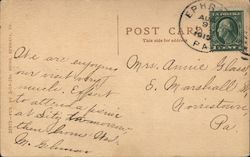 POST CARD
This side for address.
EPHRATA
AUG
9
1915
PA.
We are enjoying
our visit very
much. Expect
to attend a picnic
at Lititz tomorrow
then home Wed.
Mrs. Annie
E. Marshall St.
Norristown,
Pa.